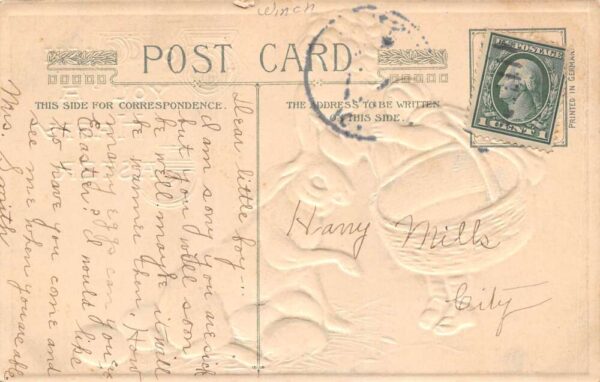 Winch
POST CARD
THIS SIDE FOR CORRESPONDENCE.
THE ADDRESS TO BE WRITTEN
ON THIS SIDE.
U.S. POSTAGE
1 CENT 1
PRINTED IN GERMANY
Dear little boy..
I am sorry you are sick
but you will soon
be well maybe it will
be warmer then. How
many eggs can you
Easter? I would like
to have you come and
see me when you're able
Mrs. Smith
Harry Mills
City